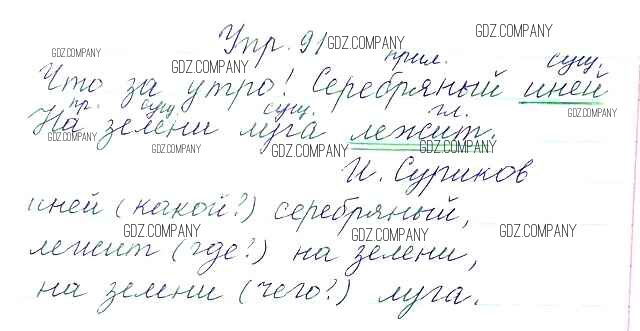 Упр. 91
GDZ.COMPANY GDZ.COMPANY GDZ.COMPANY
GDZ.COMPANY
прил. сущ.
Что за утро! Серебряный иней
GDZ.COMPANY GDZ.COMPANY
пр. сущ. сущ. гл.
На зелени луга лежит.
GDZ.COMPANY GDZ.COMPANY GDZ.COMPANY GDZ.COMPANY
И. Суриков
иней (какой?) серебряный,
GDZ.COMPANY GDZ.COMPANY GDZ.COMPANY
лежит (где?) на зелени,
на зелени (чего?) луга.